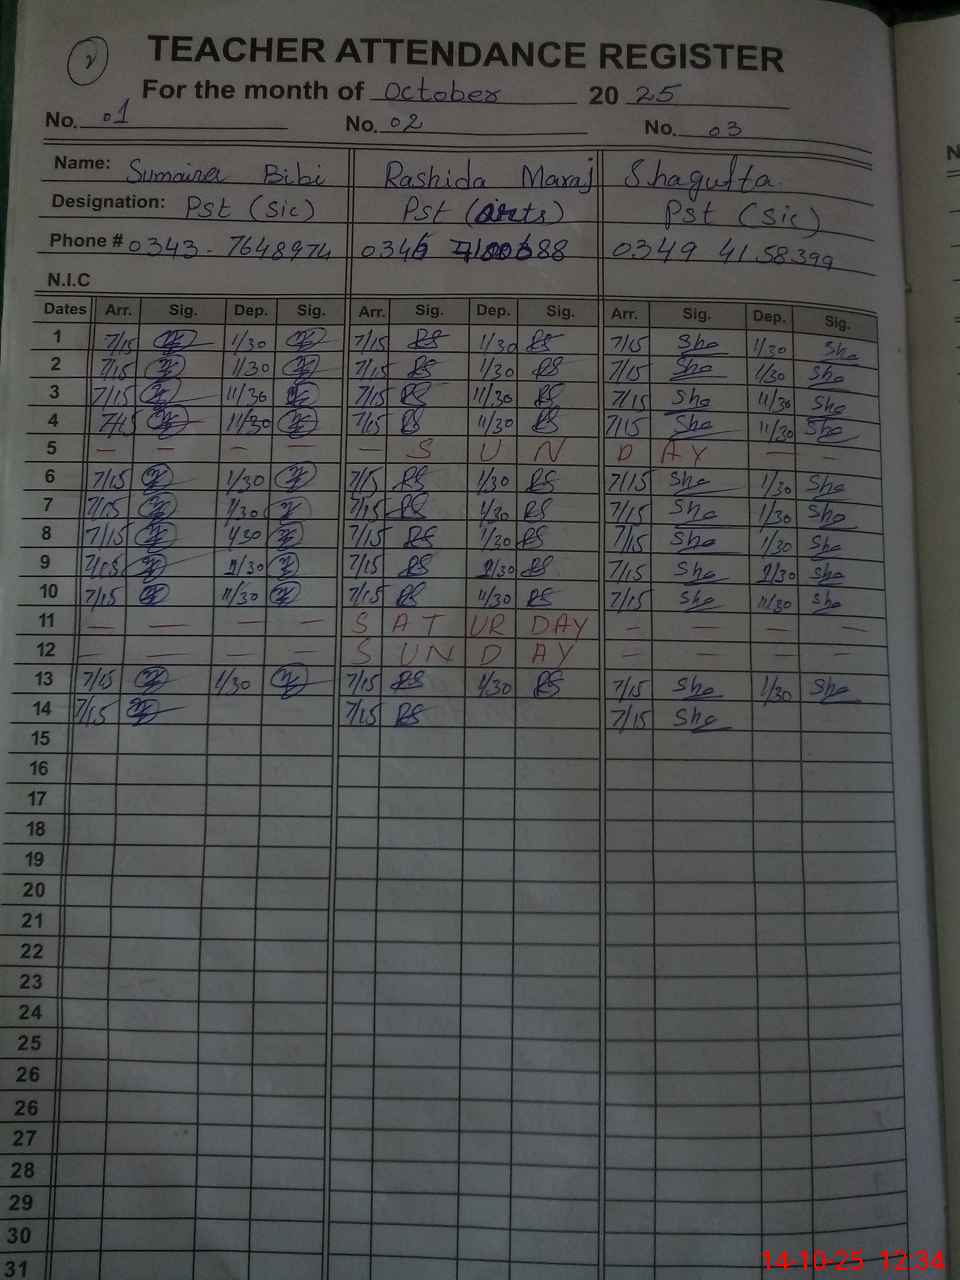 2
TEACHER ATTENDANCE REGISTER
For the month of October 2025
No. 01 No. 02 No. 03
Name: Sumaira Bibi Rashida Maraj Shagufta
Designation: Pst (Sic) Pst (arts) Pst (Sic)
Phone # 0343-7648974 0349 4158399
N.I.C
Dates Arr. Sig. Dep. Sig. Arr. Sig. Dep. Sig. Arr. Sig. Dep. Sig.
1 7/15 1/30 7/15 RS 1/30 RS 7/15 Sha 1/30 Sha
2 7/15 1/30 7/15 RS 1/30 RS 7/15 Sha 1/30 Sha
3 7/15 11/30 7/15 RS 11/30 RS 7/15 Sha 11/30 Sha
4 7/15 11/30 7/15 RS 11/30 RS 7/15 Sha 11/30 Sha
5 — — — — — S U N D A Y — —
6 7/15 1/30 7/15 RS 1/30 RS 7/15 Sha 1/30 Sha
7 7/15 1/30 7/15 RS 1/30 RS 7/15 Sha 1/30 Sha
8 7/15 1/30 7/15 RS 1/30 RS 7/15 Sha 1/30 Sha
9 7/15 1/30 7/15 RS 1/30 RS 7/15 Sha 1/30 Sha
10 7/15 11/30 7/15 RS 11/30 RS 7/15 Sha 11/30 Sha
11 — — — — S A T UR DAY — — — —
12 — — — — S UN D AY — — — —
13 7/15 1/30 7/15 RS 1/30 RS 7/15 Sha 1/30 Sha
14 7/15 7/15 RS 7/15 Sha
15
16
17
18
19
20
21
22
23
24
25
26
26
27
28
29
30
31
14-10-25 12:34